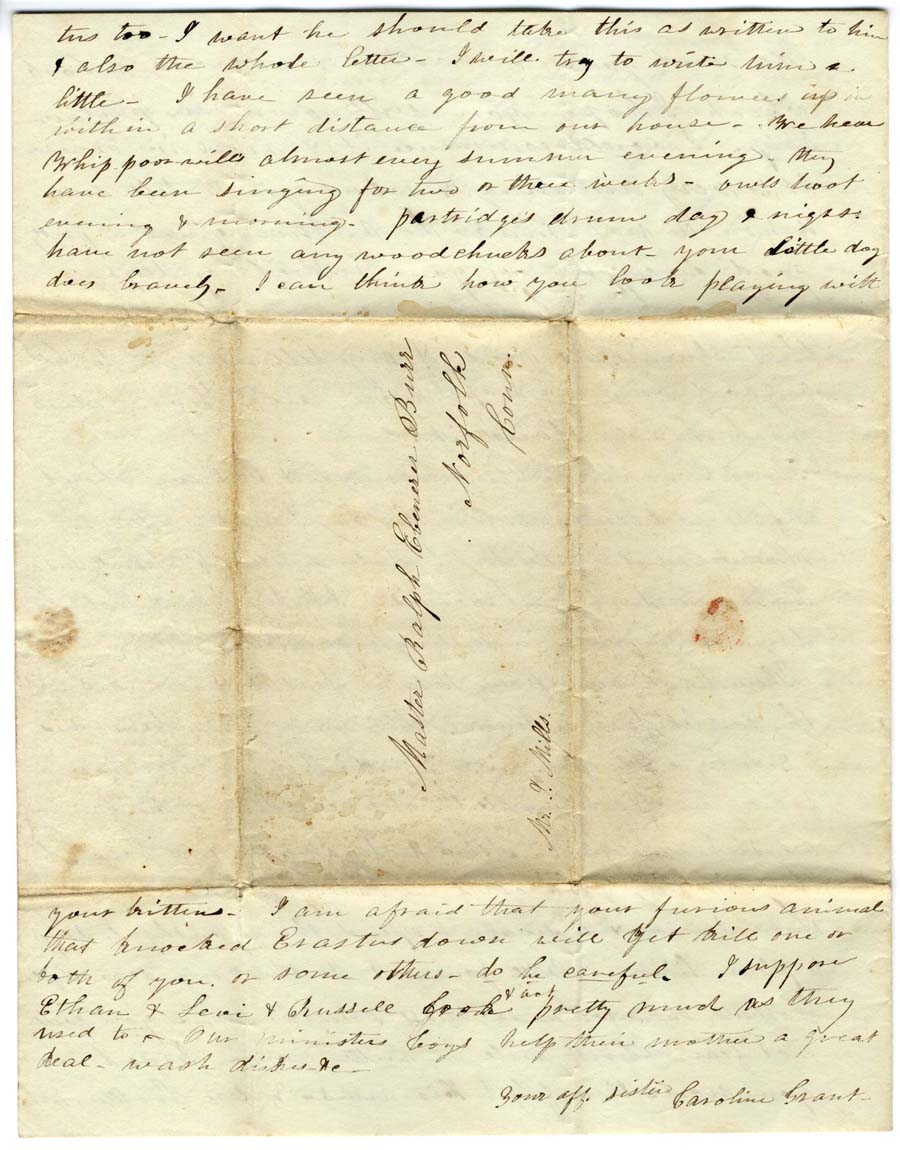 tus too - I want he should take this as written to him
& also the whole letter - I will try to write him a
little - I have seen a good many flowers up in
within a short distance from our house - We hear
Whip poor wills almost every summer evening - they
have been singing for two or three weeks - owls hoot
evening & morning. partridges drum day & night
have not seen any woodchucks about - your little dog
does bravely - I can think how you look playing with
Master Ralph Ebenezer Burr
Norfolk
Conn.
Mr. I. Mills.
your kittens - I am afraid that your furious animal
that knocked Erastus down will yet kill one or
both of you. or some others - do be careful. I suppose
Ethan & Levi & Russell look & act pretty much as they
used to - Our ministers boys help their mother a great
deal - wash dishes &c -
Your aff. sister Caroline Grant -